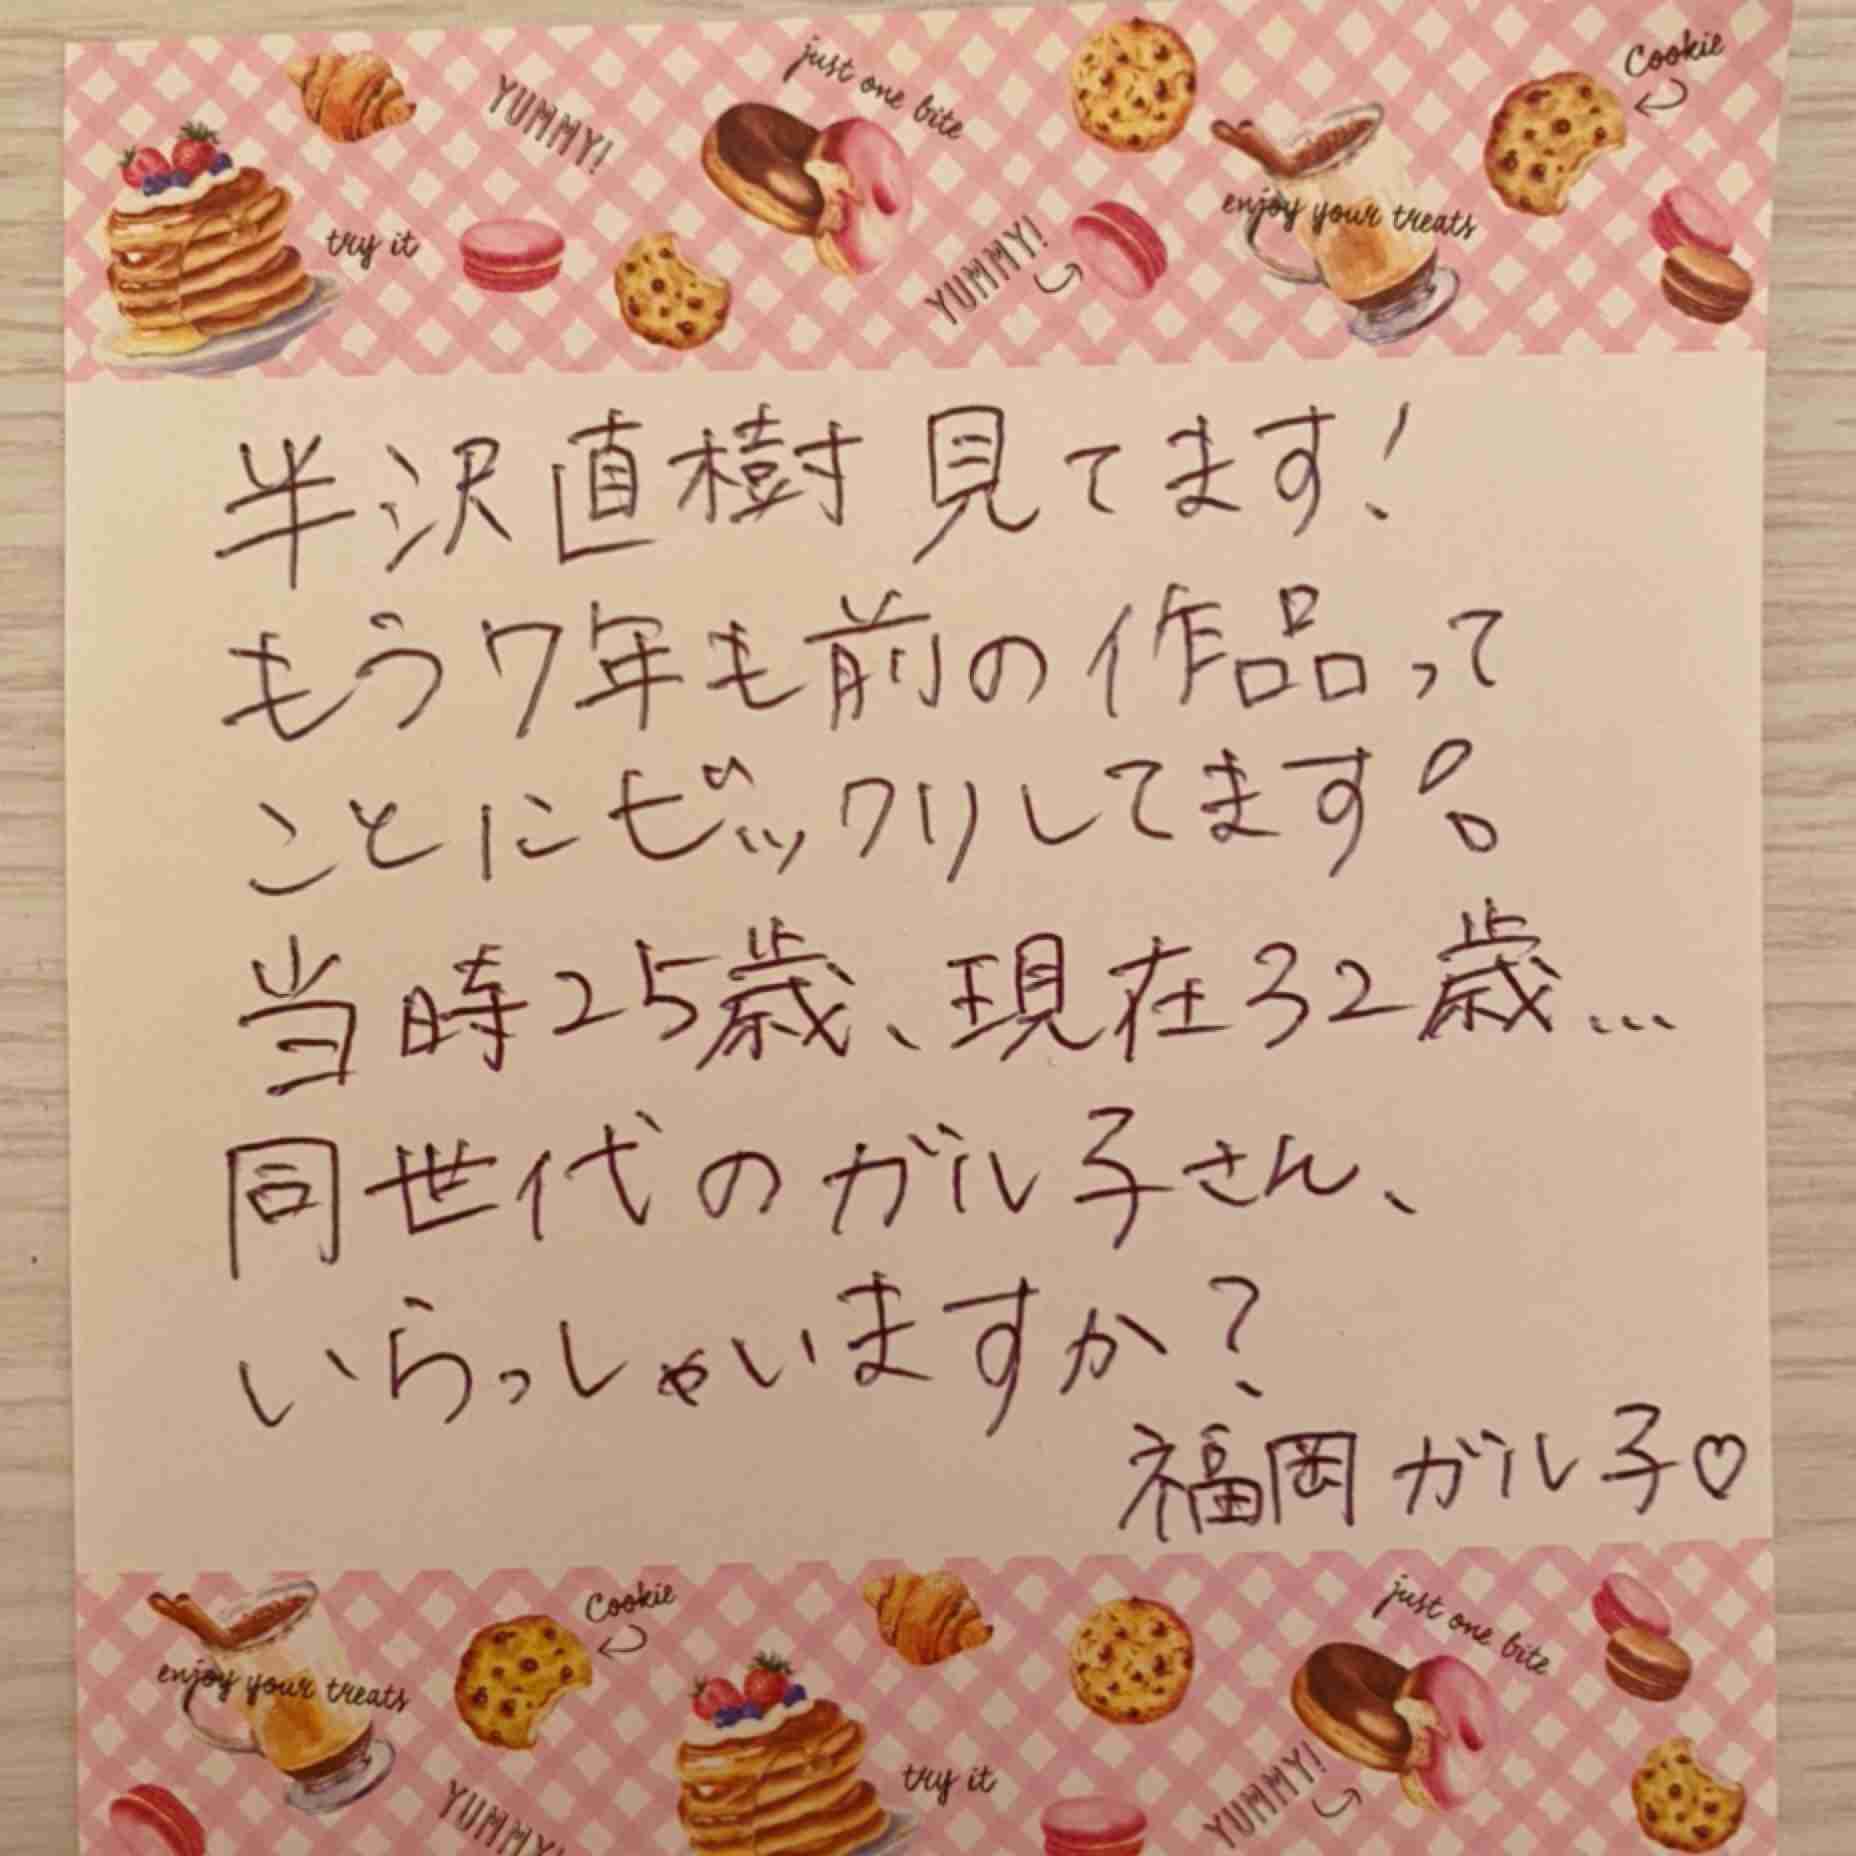 YUMMY!
just one bite
Cookie
try it
YUMMY!
enjoy your treats
半沢直樹見てます!
もう7年も前の作品って
ことにビックリしてます!
当時25歳、現在32歳…
同世代のガル子さん、
いらっしゃいますか?
福岡ガル子♡
Cookie
just one bite
enjoy your treats
try it
YUMMY!
YUMMY!